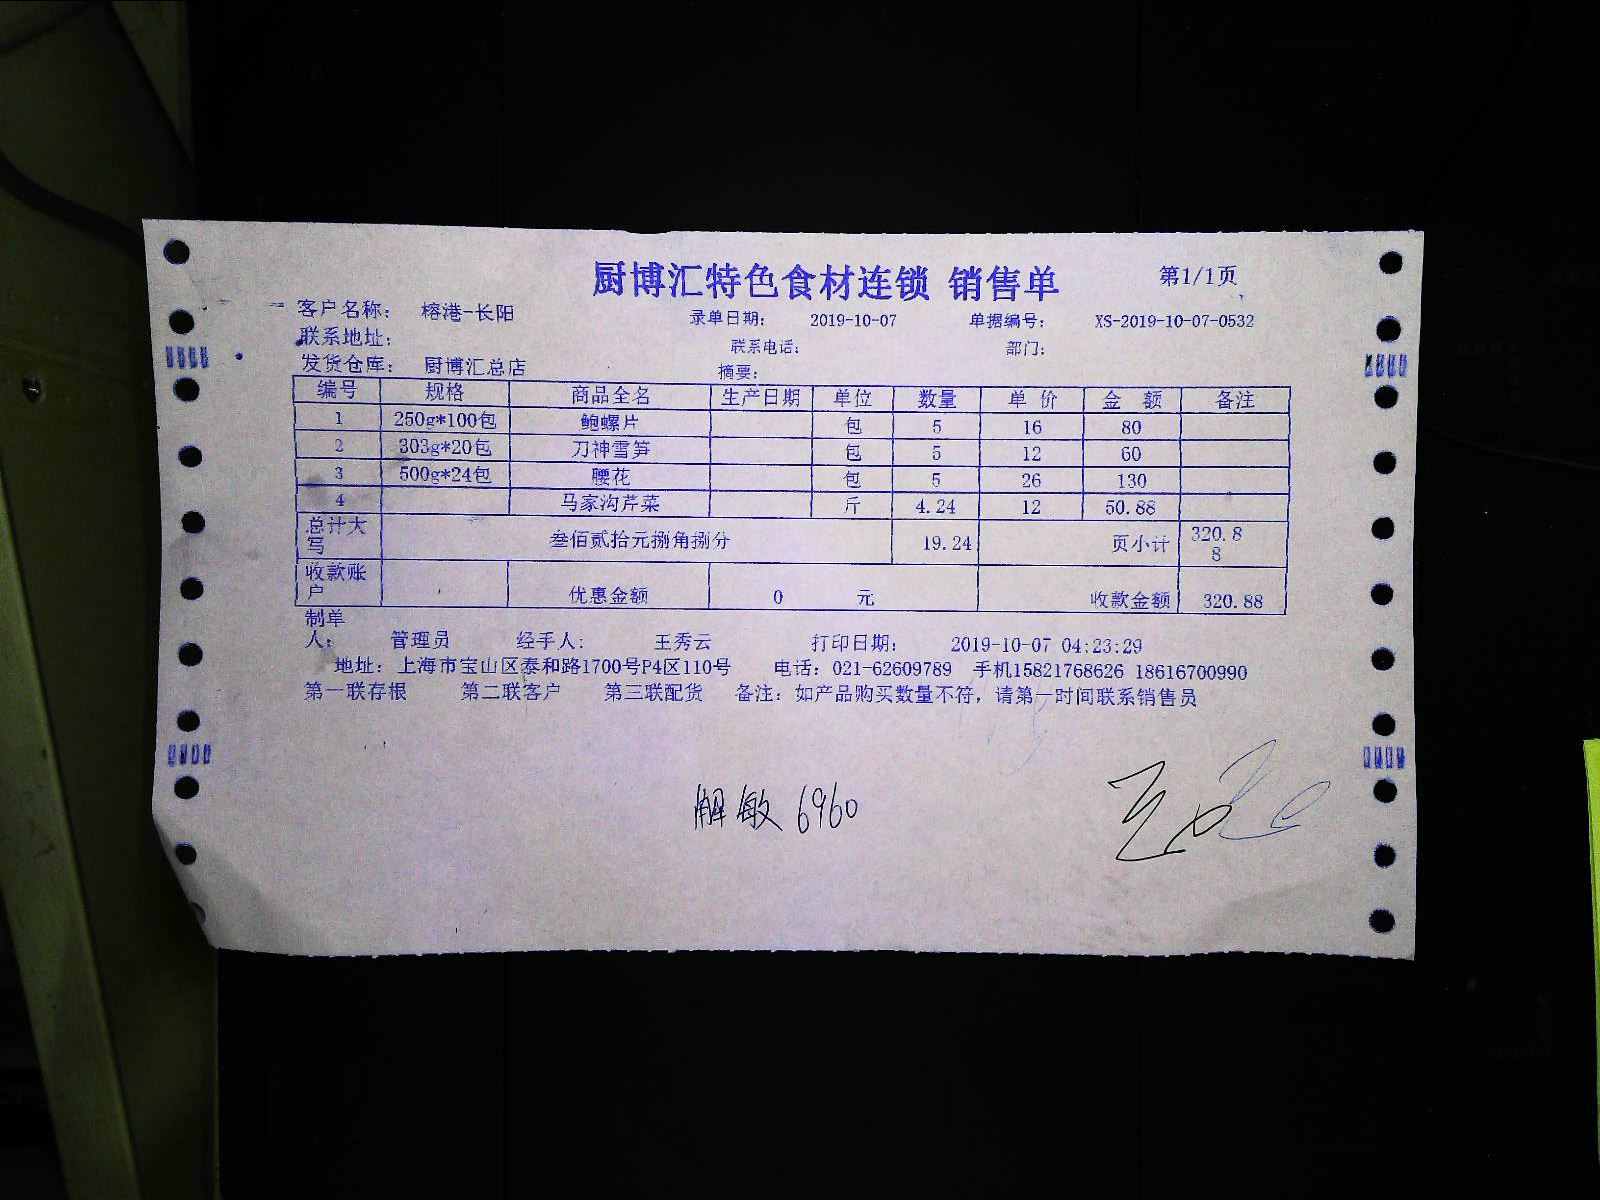 厨博汇特色食材连锁 销售单 第1/1页
客户名称: 榕港-长阳 录单日期: 2019-10-07 单据编号: XS-2019-10-07-0532
联系地址: 联系电话: 部门:
发货仓库: 厨博汇总店 摘要:
编号 规格 商品全名 生产日期 单位 数量 单 价 金 额 备注
1 250g*100包 鲍螺片 包 5 16 80
2 303g*20包 刀神雪笋 包 5 12 60
3 500g*24包 腰花 包 5 26 130
4 马家沟芹菜 斤 4.24 12 50.88
总计大写 叁佰贰拾元捌角捌分 19.24 页小计 320.88
收款账户 优惠金额 0 元 收款金额 320.88
制单人: 管理员 经手人: 王秀云 打印日期: 2019-10-07 04:23:29
地址: 上海市宝山区泰和路1700号P4区110号 电话: 021-62609789 手机15821768626 18616700990
第一联存根 第二联客户 第三联配货 备注: 如产品购买数量不符, 请第一时间联系销售员
解敏 6960